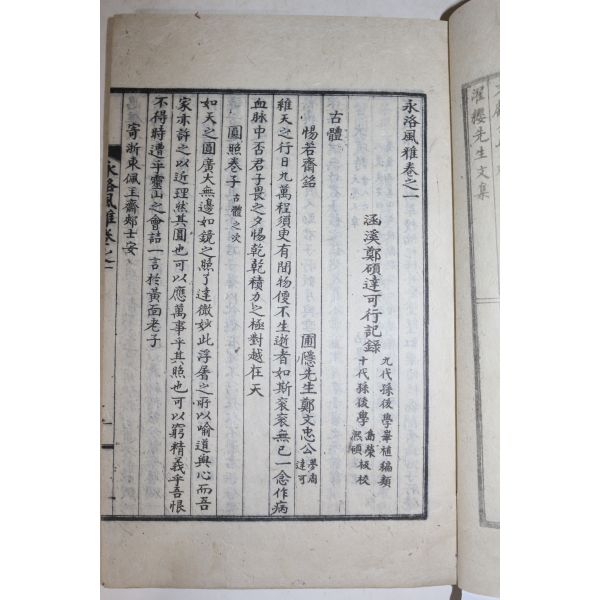 永洛風雅卷之一
涵溪鄭碩達可行記錄
九代孫後學華植編類
十代孫後學
喬榮板校
熙碩
古體
惕若齋銘
圃隱先生鄭文忠公
夢周
達可
維天之行日九萬程須臾有間物便不生逝者如斯袞袞無已一念作病
血脉中否君子畏之夕惕乾乾積力之極對越在天
圓照卷子
古體之次
如天之圓廣大無邊如鏡之照了達微妙此浮屠之所以喻道與心而吾
家亦許之以近理然其圓也可以應萬事乎其照也可以窮精義乎吾恨
不得時遭乎靈山之會詰一言於黃面老子
寄浙東佩玉齋鄭士安
永洛風雅卷之一
濯纓先生文集